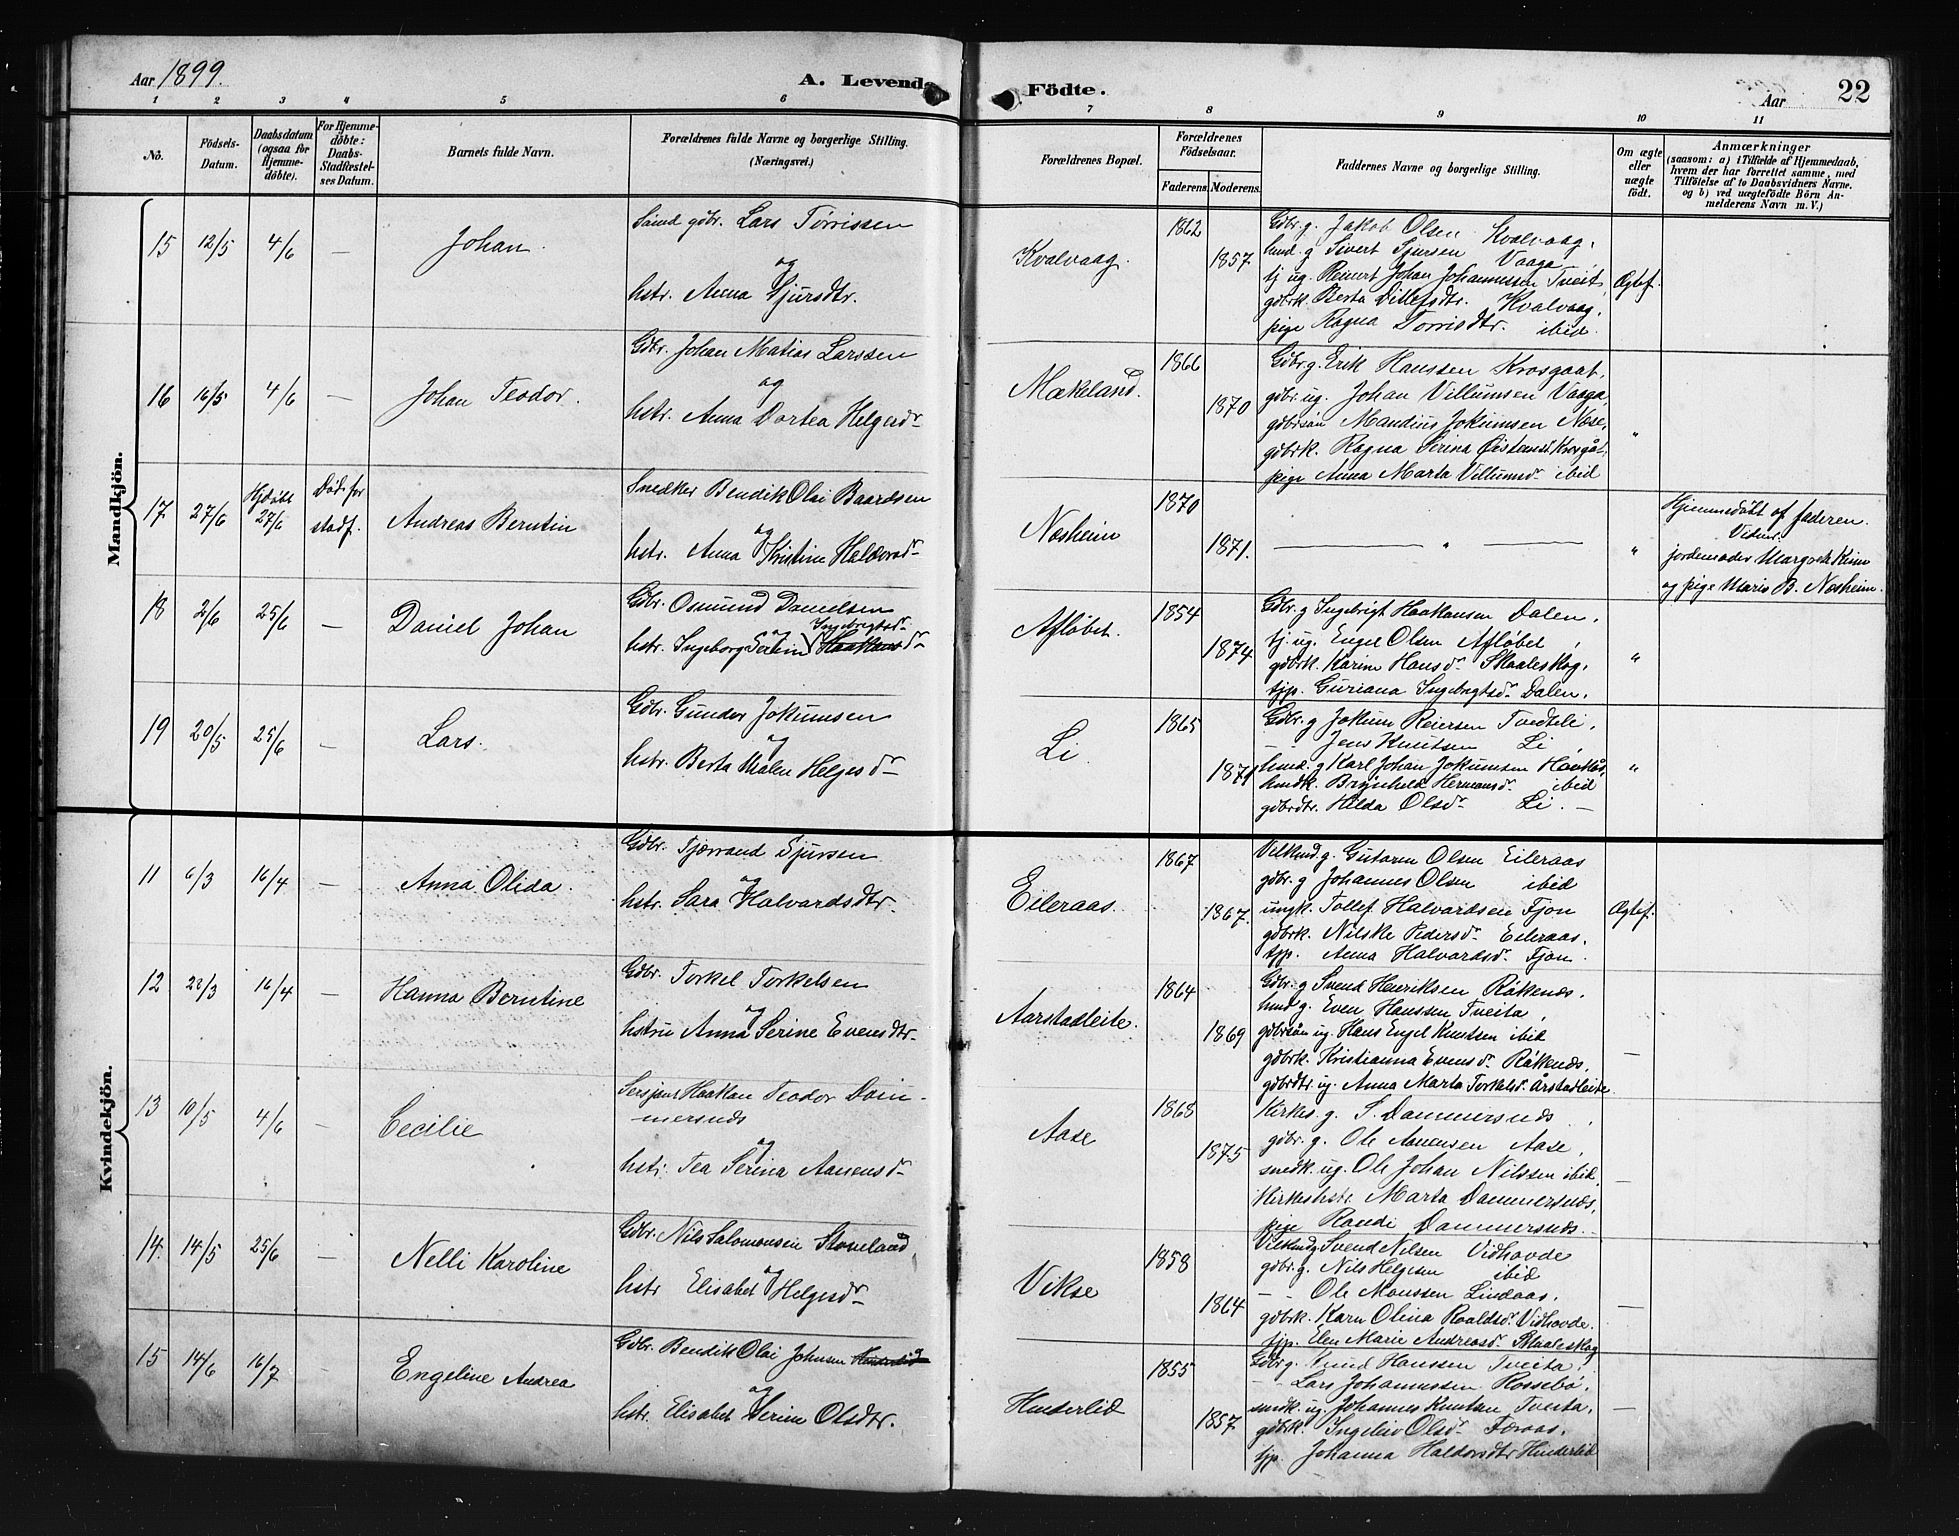 Aar 1899.
A. Levende Födte.
Aar
22
1 2 3 4 5 6 7 8 9 10 11
No.
Födsels-Datum.
Daabsdatum (ogsaa for Hjemme-döbte).
For Hjemme-döbte: Daabs-Stadfæstel-ses Datum.
Barnets fulde Navn.
Forældrenes fulde Navne og borgerlige Stilling. (Næringsvei.)
Forældrenes Bopæl.
Forældrenes Födselsaar.
Faderens. Moderens.
Faddernes Navne og borgerlige Stilling.
Om ægte eller uægte födt.
Anmærkninger
(saasom: a) i Tilfælde af Hjemmedaab, hvem der har forrettet samme, med Tilföielse af to Daabsvidners Navne. og b) ved uægtefödte Börn An-melderens Navn m. V.)
Mandkjön.
15 12/5 4/6 — Johan.
Sönd gdbr. Lars Tørrissen
og
hstr. Anna Sjursdtr.
Kvalvaag.
1862
1857
Gdbr g. Jakob Olsen Kvalvaag,
hmd g Sivert Sjursen Vaaga
tj ug. Reinert Johan Johannessen Tveit,
gdbrk. Berta Ditlefsdtr. Kvalvaag,
pige Ragna Torrisdtr. ibid.
Ægtef.
16 16/5 4/6 — Johan Teodor.
Gdbr. Johan Matias Larssen
og
hstr. Anna Dortea Helgesdr
Mækeland.
1866
1870
Gdbr g. Erik Hanssen Krosgaat,
gdbr. ug. Johan Villumsen Vaaga,
gdbrsön Mandius Jokumsen Næse,
gdbrk. Ragna Serina Østensd. Krosgåt,
pige Anna Marta Villumsdr ibid
"
17 27/6 Hjdöbt 27/6 Död för stadf. Andreas Berntin
Snedker Bendik Olai Baardsen
og
hstr. Anna Kristine Haldorsdr
Næsheim
1870
1871.
— " —
"
Hjemmedöbt af faderen.
Vidner:
jordemoder Margrete Kinn
og pige Maris B. Nesheim.
18 2/6 25/6 — Daniel Johan
Gdbr. Osmund Danielsen
og Ingebrigtsdr
hstr. Ingeborg Serine Haakansdr
Afløbet.
1854
1874
Gdbr. g Ingebrigt Haakansen Dalen,
tj. ug. Engel Olsen Afløbet,
gdbrk. Karine Hansdr Skaaleskog,
tjp. Guriana Ingebrigtsdr Dalen.
"
19 20/5 25/6 — Lars.
Gdbr. Gunder Jokumsen
og
hstr. Berta Malen Helgesdr
Li.
1865
1871
Gdbr. g Jokum Reiersen Tvedteli,
— – Jens Knutsen Li,
hmd. g Karl Johan Jokumsen
hmdk. Brynhild Hermansdr ibid
gdbrdtr. Hilda Olsdr Li. —
"
Kvindekjön.
11 6/3 16/4 — Anna Olida.
Gdbr. Tjærrand Sjursen
og
hstr. Sara Halvardsdtr.
Eileraas.
1867
1867.
Vilkmd. g. Gutorm Olsen Eileraas
gdbr. g Johannes Olsen ibid
ungk. Tollef Halvardsen Fjon
gdbrk. Nilske Pedersdr Eileraas.
tjp. Anna Halvardsdr Fjon.
Ægtef.
12 22/3 16/4 — Hanna Berntine
Gdbr. Torkel Torkelsen
og
hstru Anna Serine Evensdtr.
Aarstadleite.
1864
1869
Gdbr. g Svend Henriksen Råkenæs,
hmd g. Even Hanssen Tveita,
gdbrsön ug. Hans Engel Knutsen ibid
gdbrk. Kristianna Evensdr Råkenæs,
gdbrdtr. ug. Anna Marta Torkelsdr Årstadleite
—
13 10/5 4/6 — Cecilie
Sersjant Haakan Teodor Dom-
mersnæs
og
hstr. Tea Serina Aanensdr
Aase
1868
1875
Kirkes. g. S. Dommersnæs,
gdbr. g. Ole Aanensen Aase,
snedk. ug. Ole Johan Nilssen ibid,
Kirkeshstr. Marta Dommersnæs,
pige Randi Dommersnæs.
—
14. 14/5 25/6 — Nelli Karoline
Gdbr. Nils Salomonsen Stoneland,
og
hstr Elisabet Helgesdr
Vikse
1858
1864
Vilkmd g Svend Nilsen Vidhovde
gdbr. g. Nils Helgesen ibid
— – Ole Monssen Lindaas.
gdbrk. Karn Olina Roaldsdr Vidhovde
tjp. Elen Marie Andreasdr Skaaleskog
—
15 14/6 16/7 Engeline Andrea
Gdbr. Bendik Olai Johnsen Hinderlid
og
hstr. Elisabet Serine Olsdtr.
Hinderlid
1855
1857.
Gdbr g. Knud Hanssen Tveita,
— – Lars Johannessen Rossebö,
smdk. ug. Johannes Knutsen Tveita,
gdbrk. Ingeliv Olsdr Foraas,
tjp. Johanna Haldorsdtr Hinderlid
—